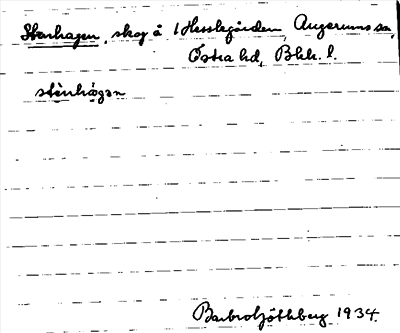 Stenhagen, skog å 1 Hesslegården, Augerums sn,
Östra hd, Blek. l.
stènhàgan
Barbro Hjöthberg 1934.